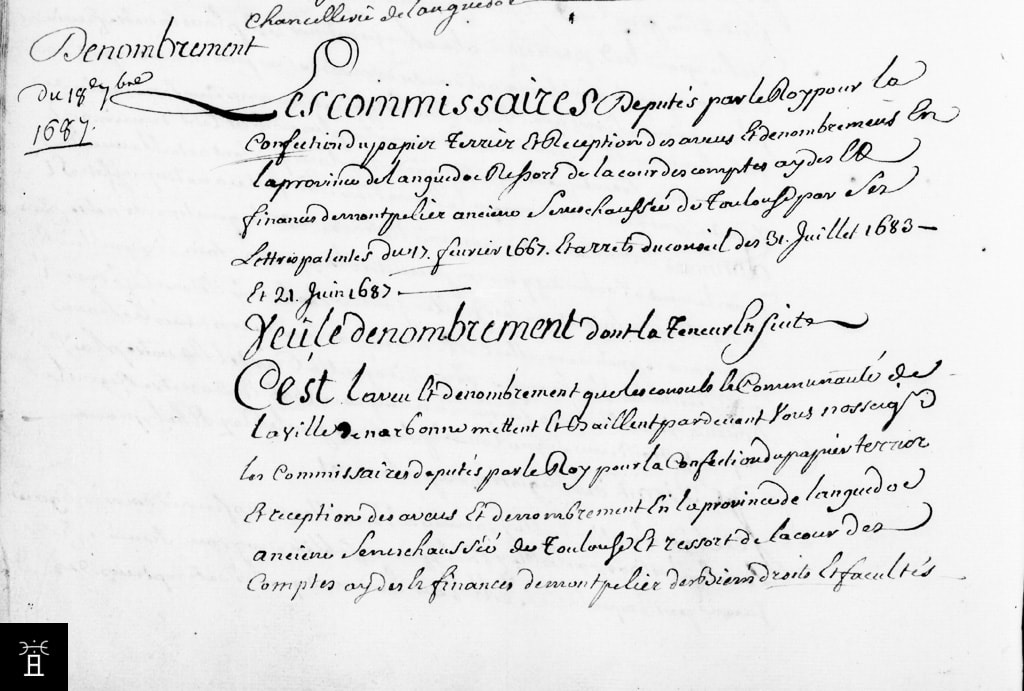 chancellerie de languedoc
Denombrement
du 18e 7bre
1687.
Les commissaires Deputés par le Roy pour la
Confection du papier Terrier Et Reception des aveus Et denombremens En
la province de languedoc Ressort de la cour des comptes aydes Et
finances de montpelier anciene Seneschaussée de Toulouse par Ses
Lettres patentes du 17. fevrier 1667. Et arrets du conseil des 31. Juillet 1683 –
Et 21. Juin 1687
Veu le denombrement dont la Teneur En Suite
C'est l'aveu Et denombrement que les consuls le Communauté de
la ville de narbonne mettent Et Baillent pardevant Vous nosseigrs
les Commissaires deputés par le Roy pour la Confection du papier terrier
Et reception des aveus Et denombrement En la province de languedoc
anciene Seneschaussée de Toulouse Et ressort de la cour des
Comptes aydes & finances de montpelier des Biens droits Et facultés